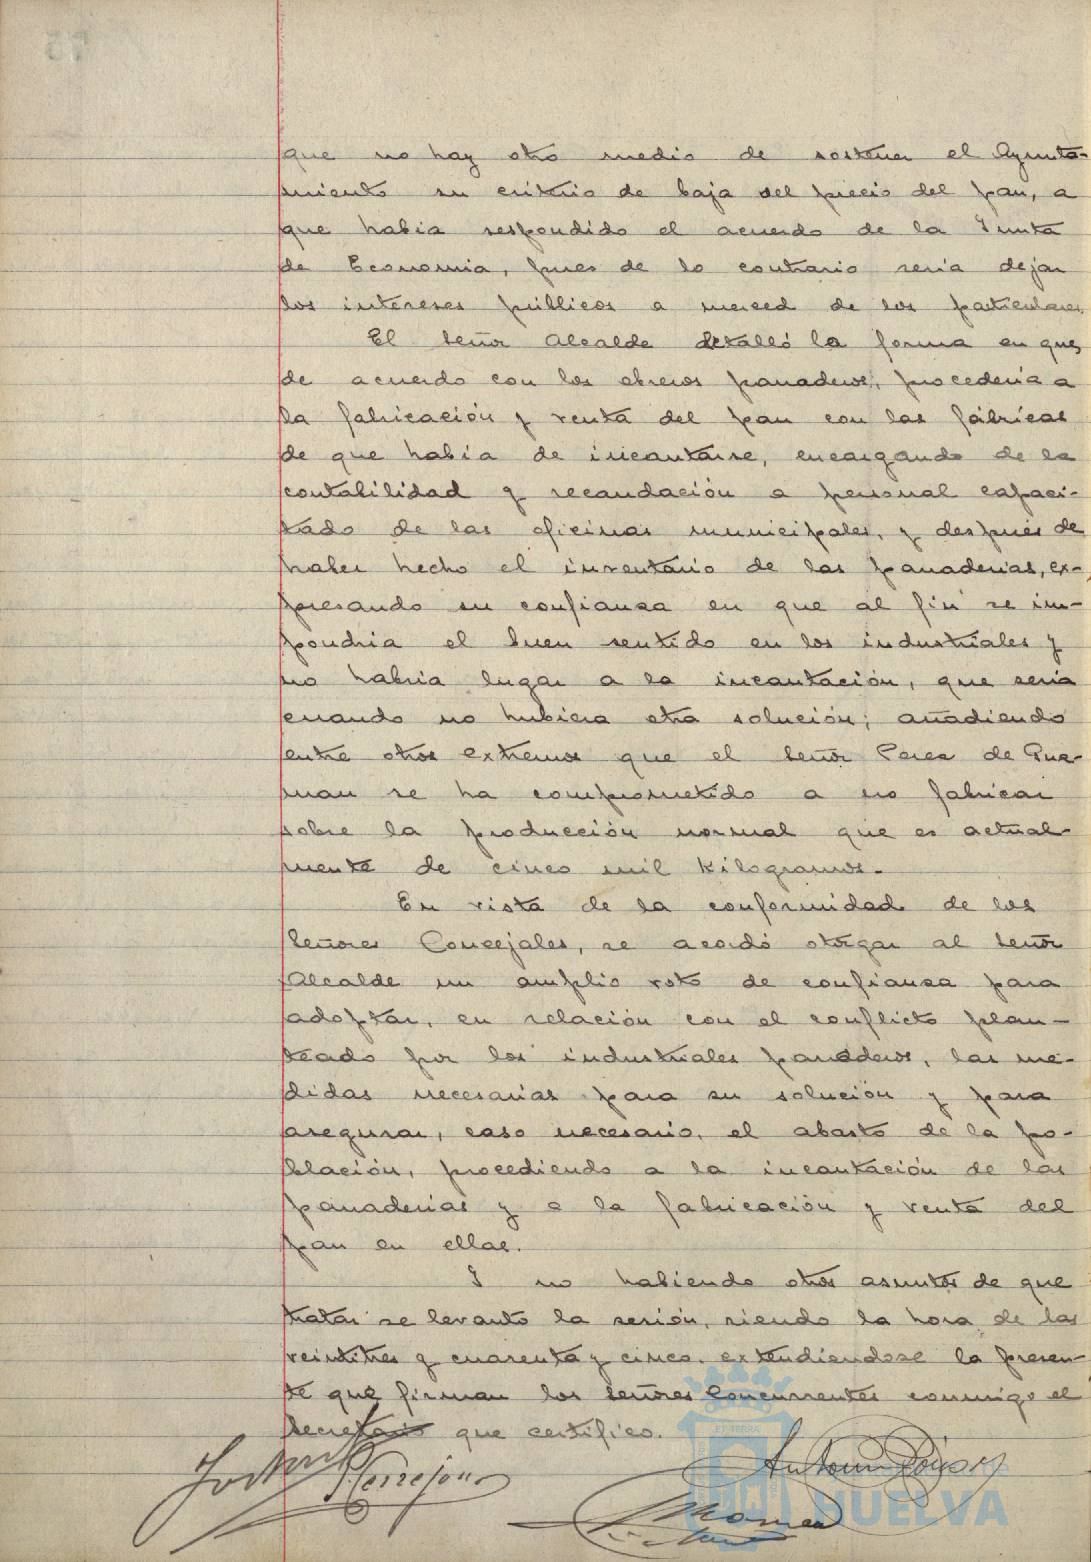 que no hay otro medio de sostener el Ayunta-
miento su criterio de baja del precio del pan, a
que habia respondido el acuerdo de la Junta
de Economia, pues de lo contrario seria dejar
los intereses públicos a merced de los particulares.
El Señor Alcalde detalló la forma en que,
de acuerdo con los obreros panaderos, procederia a
la fabricación y venta del pan con las fábricas
de que habia de incautarse, encargando de la
contabilidad y recaudación a personal capaci-
tado de las oficinas municipales, y después de
haber hecho el inventario de las panaderias, ex-
presando su confianza en que al fin se im-
pondria el buen sentido en los industriales y
no habria lugar a la incautación, que seria
cuando no hubiera otra solución; añadiendo
entre otros extremos que el Señor Perez de Guz-
man se ha comprometido a no fabricar
sobre la producción normal que es actual-
mente de cinco mil Kilogramos.
En vista de la conformidad de los
Señores Concejales, se acordó otorgar al Señor
Alcalde un amplio voto de confianza para
adoptar, en relación con el conflicto plan-
teado por los industriales panaderos, las me-
didas necesarias para su solución y para
asegurar, caso necesario, el abasto de la po-
blación, procediendo a la incautación de las
panaderias y a la fabricación y venta del
pan en ellas.
Y no habiendo otros asuntos de que
tratar se levantó la sesión, siendo la hora de las
veintitres y cuarenta y cinco, extendiendose la presen-
te que firman los Señores Concurrentes conmigo el
Secretario que certifico.
HUELVA